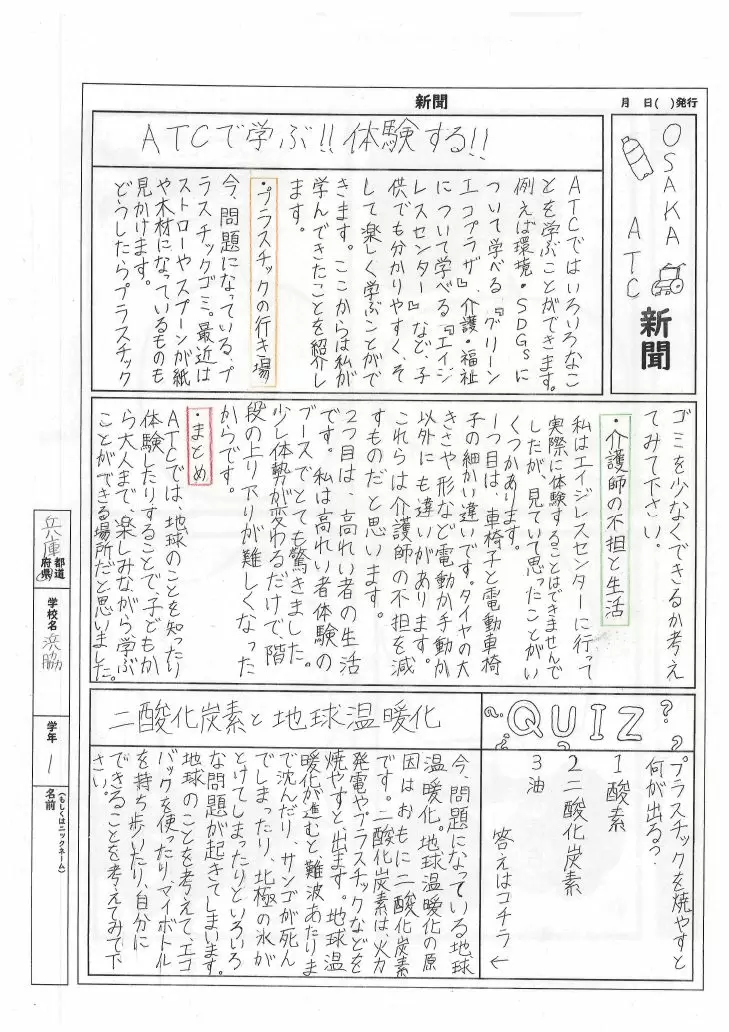 新聞
月 日( )発行
OSAKA
ATC
新聞
ATCで学ぶ!!体験する!!
ATCではいろいろなこ
とを学ぶことができます。
例えば環境・SDGsに
ついて学べる『グリーン
エコプラザ』、介護・福祉
について学べる『エイジ
レスセンター』など、子
供でも分かりやすく、そ
して楽しく学ぶことがで
きます。ここからは私が
学んできたことを紹介し
ます。
・プラスチックの行き場
今、問題になっている、プ
ラスチックゴミ。最近は
ストローやスプーンが紙
や木材になっているものも
見かけます。
どうしたらプラスチック
ゴミを少なくできるか考え
てみて下さい。
・介護師の不担と生活
私はエイジレスセンターに行って
実際に体験することはできませんで
したが、見ていて思ったことがい
くつかあります。
1つ目は、車椅子と電動車椅
子の細かい違いです。タイヤの大
きさや形など電動か手動か
以外にも違いがあります。
これらは介護師の不担を減
すものだと思います。
2つ目は、高れい者の生活
です。私は高れい者体験の
ブースでとても驚きました。
少し体勢が変わるだけで、階
段の上り下りが難しくなった
からです。
・まとめ
ATCでは、地球のことを知ったり
体験したりすることで、子どもか
ら大人まで、楽しみながら学ぶ
ことができる場所だと思いました。
QUIZ??
プラスチックを焼やすと
何が出る?
1酸素
2二酸化炭素
3油
答えはコチラ←
二酸化炭素と地球温暖化
今、問題になっている地球
温暖化。地球温暖化の原
因はおもに二酸化炭素
です。二酸化炭素は、火力
発電やプラスチックなどを
焼やすと、出ます。地球温
暖化が進むと難波あたりま
で沈んだり、サンゴが死ん
でしまったり、北極の氷が
とけてしまったりといろいろ
な問題が起きてしまいます。
地球のことを考えて、エコ
バックを使ったり、マイボトル
を持ち歩いたり、自分に
できることを考えてみて下
さい。
兵庫
都道
府県
学校名
浜脇
学年
1
名前
(もしくはニックネーム)